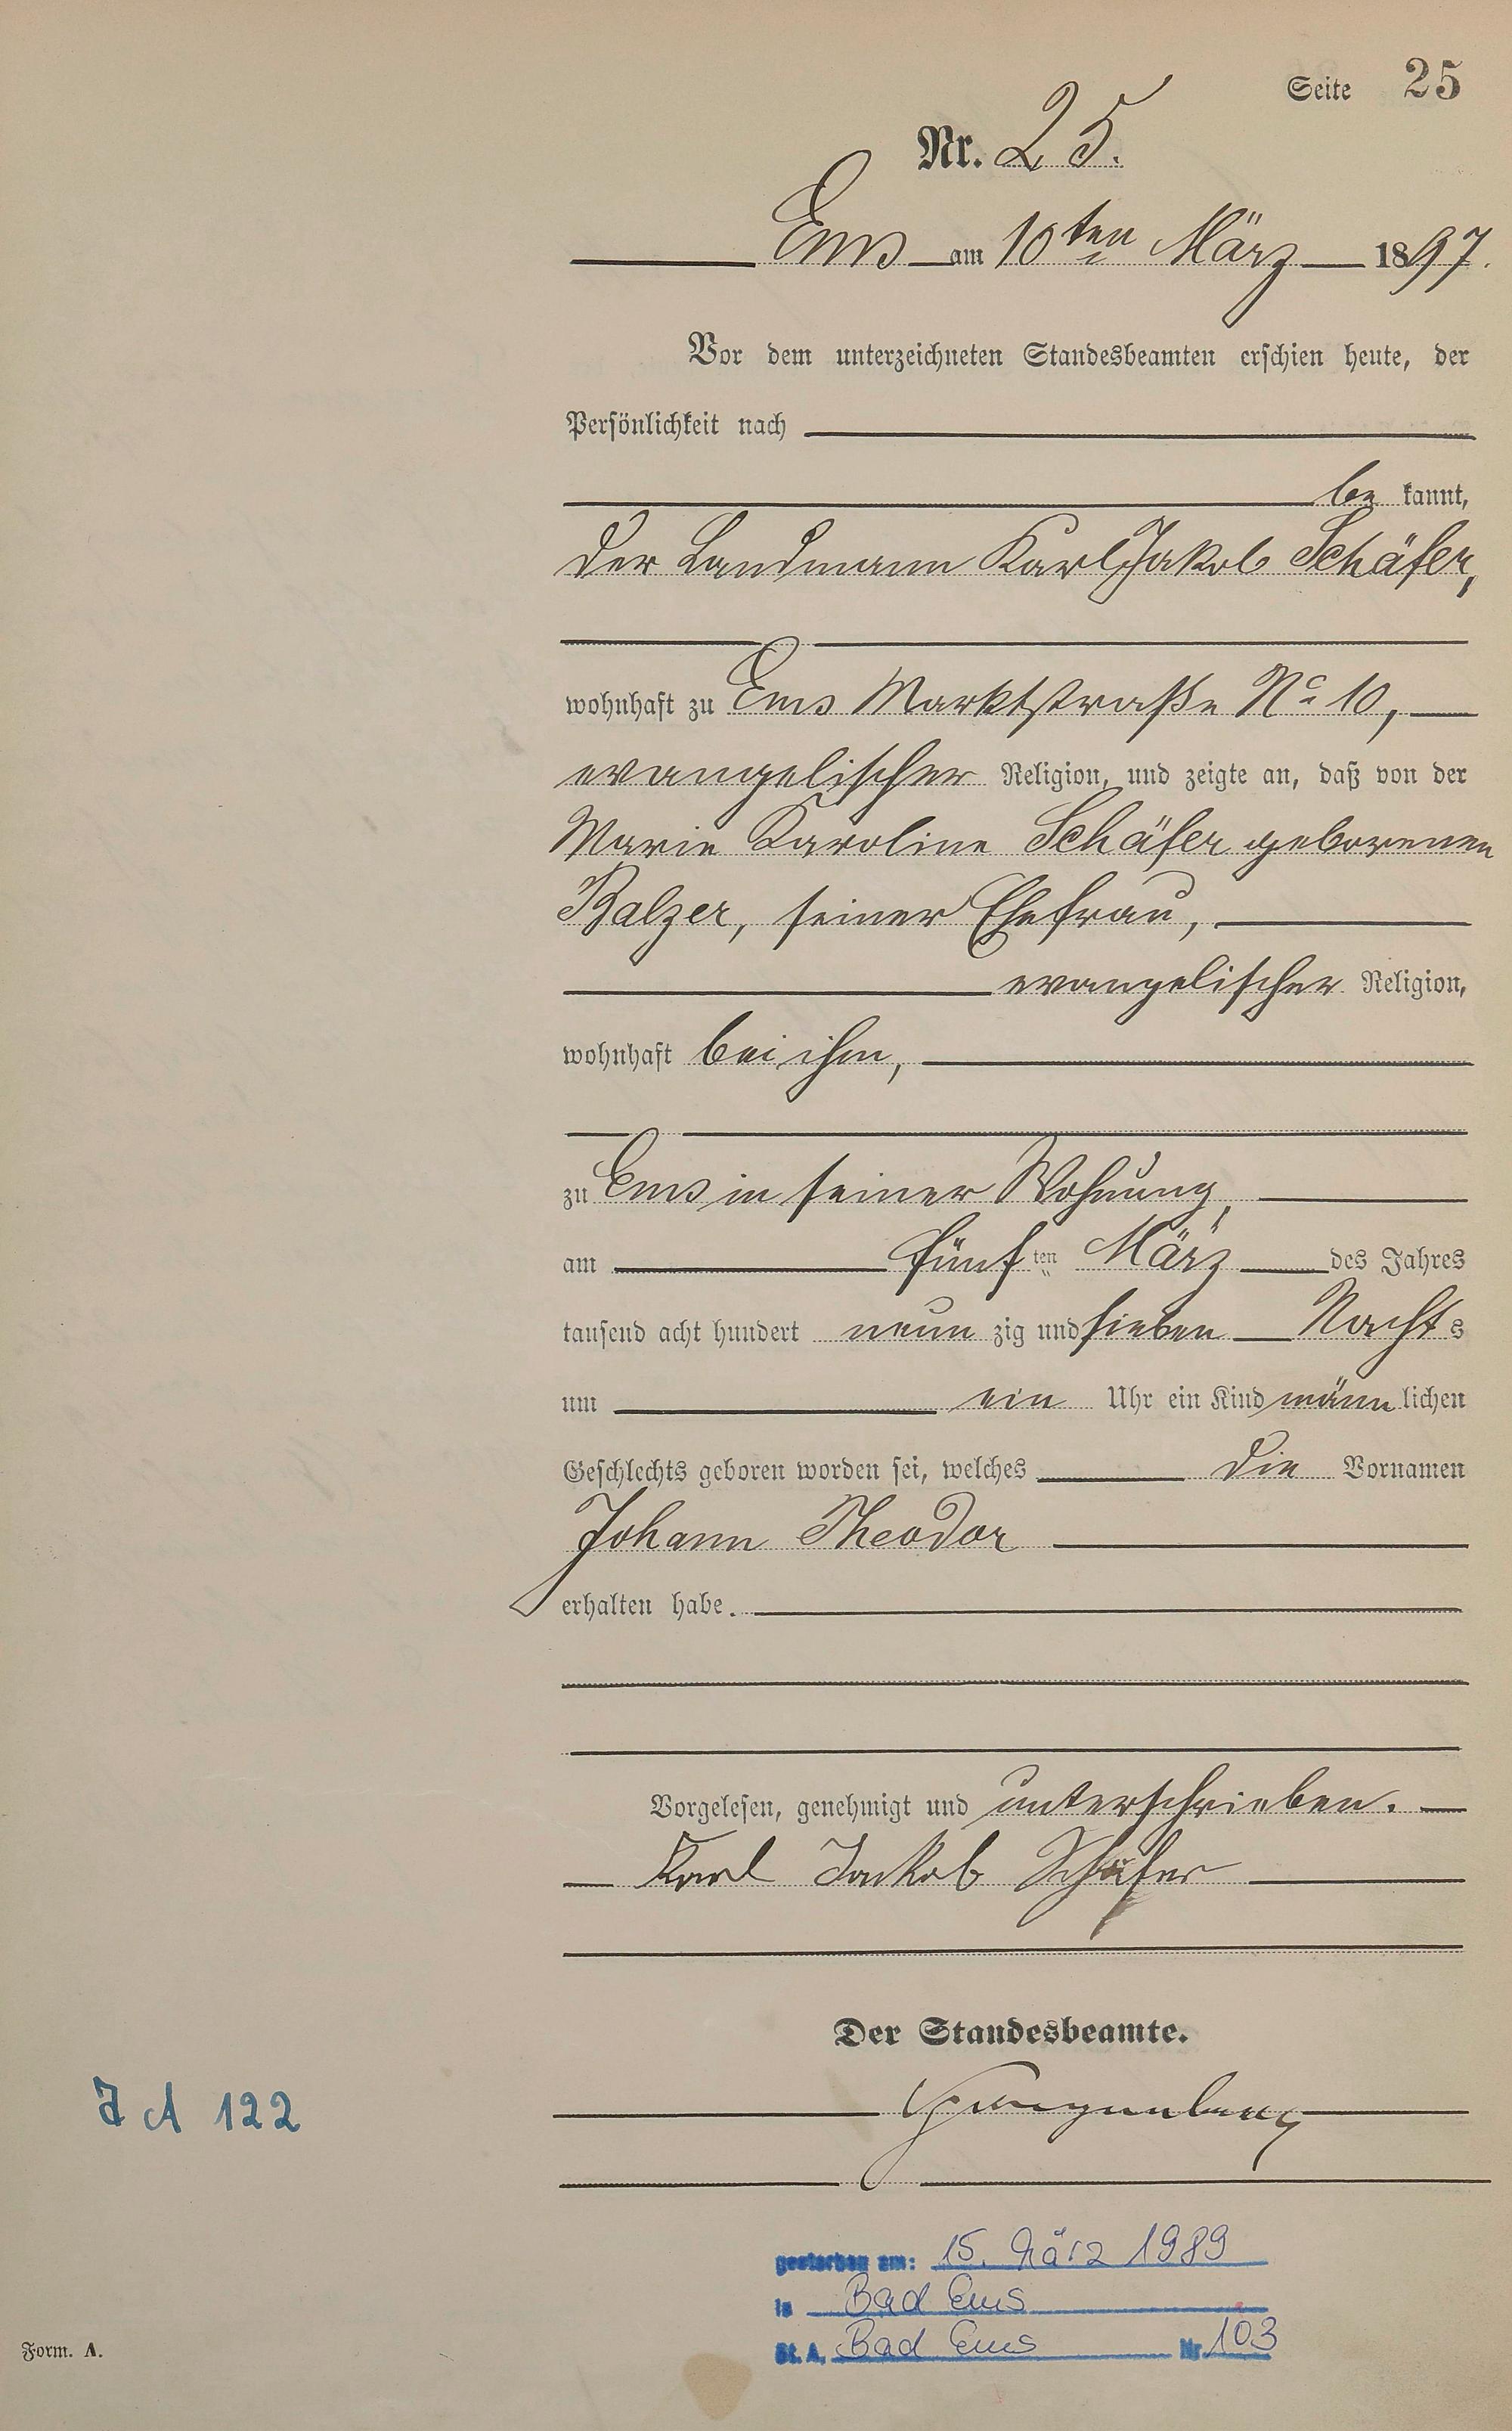 Seite 25
Nr. 25.
Ems am 10ten März 1897.
Vor dem unterzeichneten Standesbeamten erschien heute, der
Persönlichkeit nach
be kannt,
der Landmann Karl Jakob Schäfer,
wohnhaft zu Ems Marktstraße No 10,
evangelischer Religion, und zeigte an, daß von der
Marie Karoline Schäfer geborenen
Balzer, seiner Ehefrau,
evangelischer Religion,
wohnhaft bei ihm,
zu Ems in seiner Wohnung,
am fünf ten März des Jahres
tausend acht hundert neun zig und sieben Nacht s
um ein Uhr ein Kind männ lichen
Geschlechts geboren worden sei, welches die Vornamen
Johann Theodor
erhalten habe.
Vorgelesen, genehmigt und unterschrieben.
Karl Jakob Schäfer
Der Standesbeamte.
J A 122
gestorben am: 15. März 1989
in Bad Ems
St. A. Bad Ems Nr. 103
Form. A.